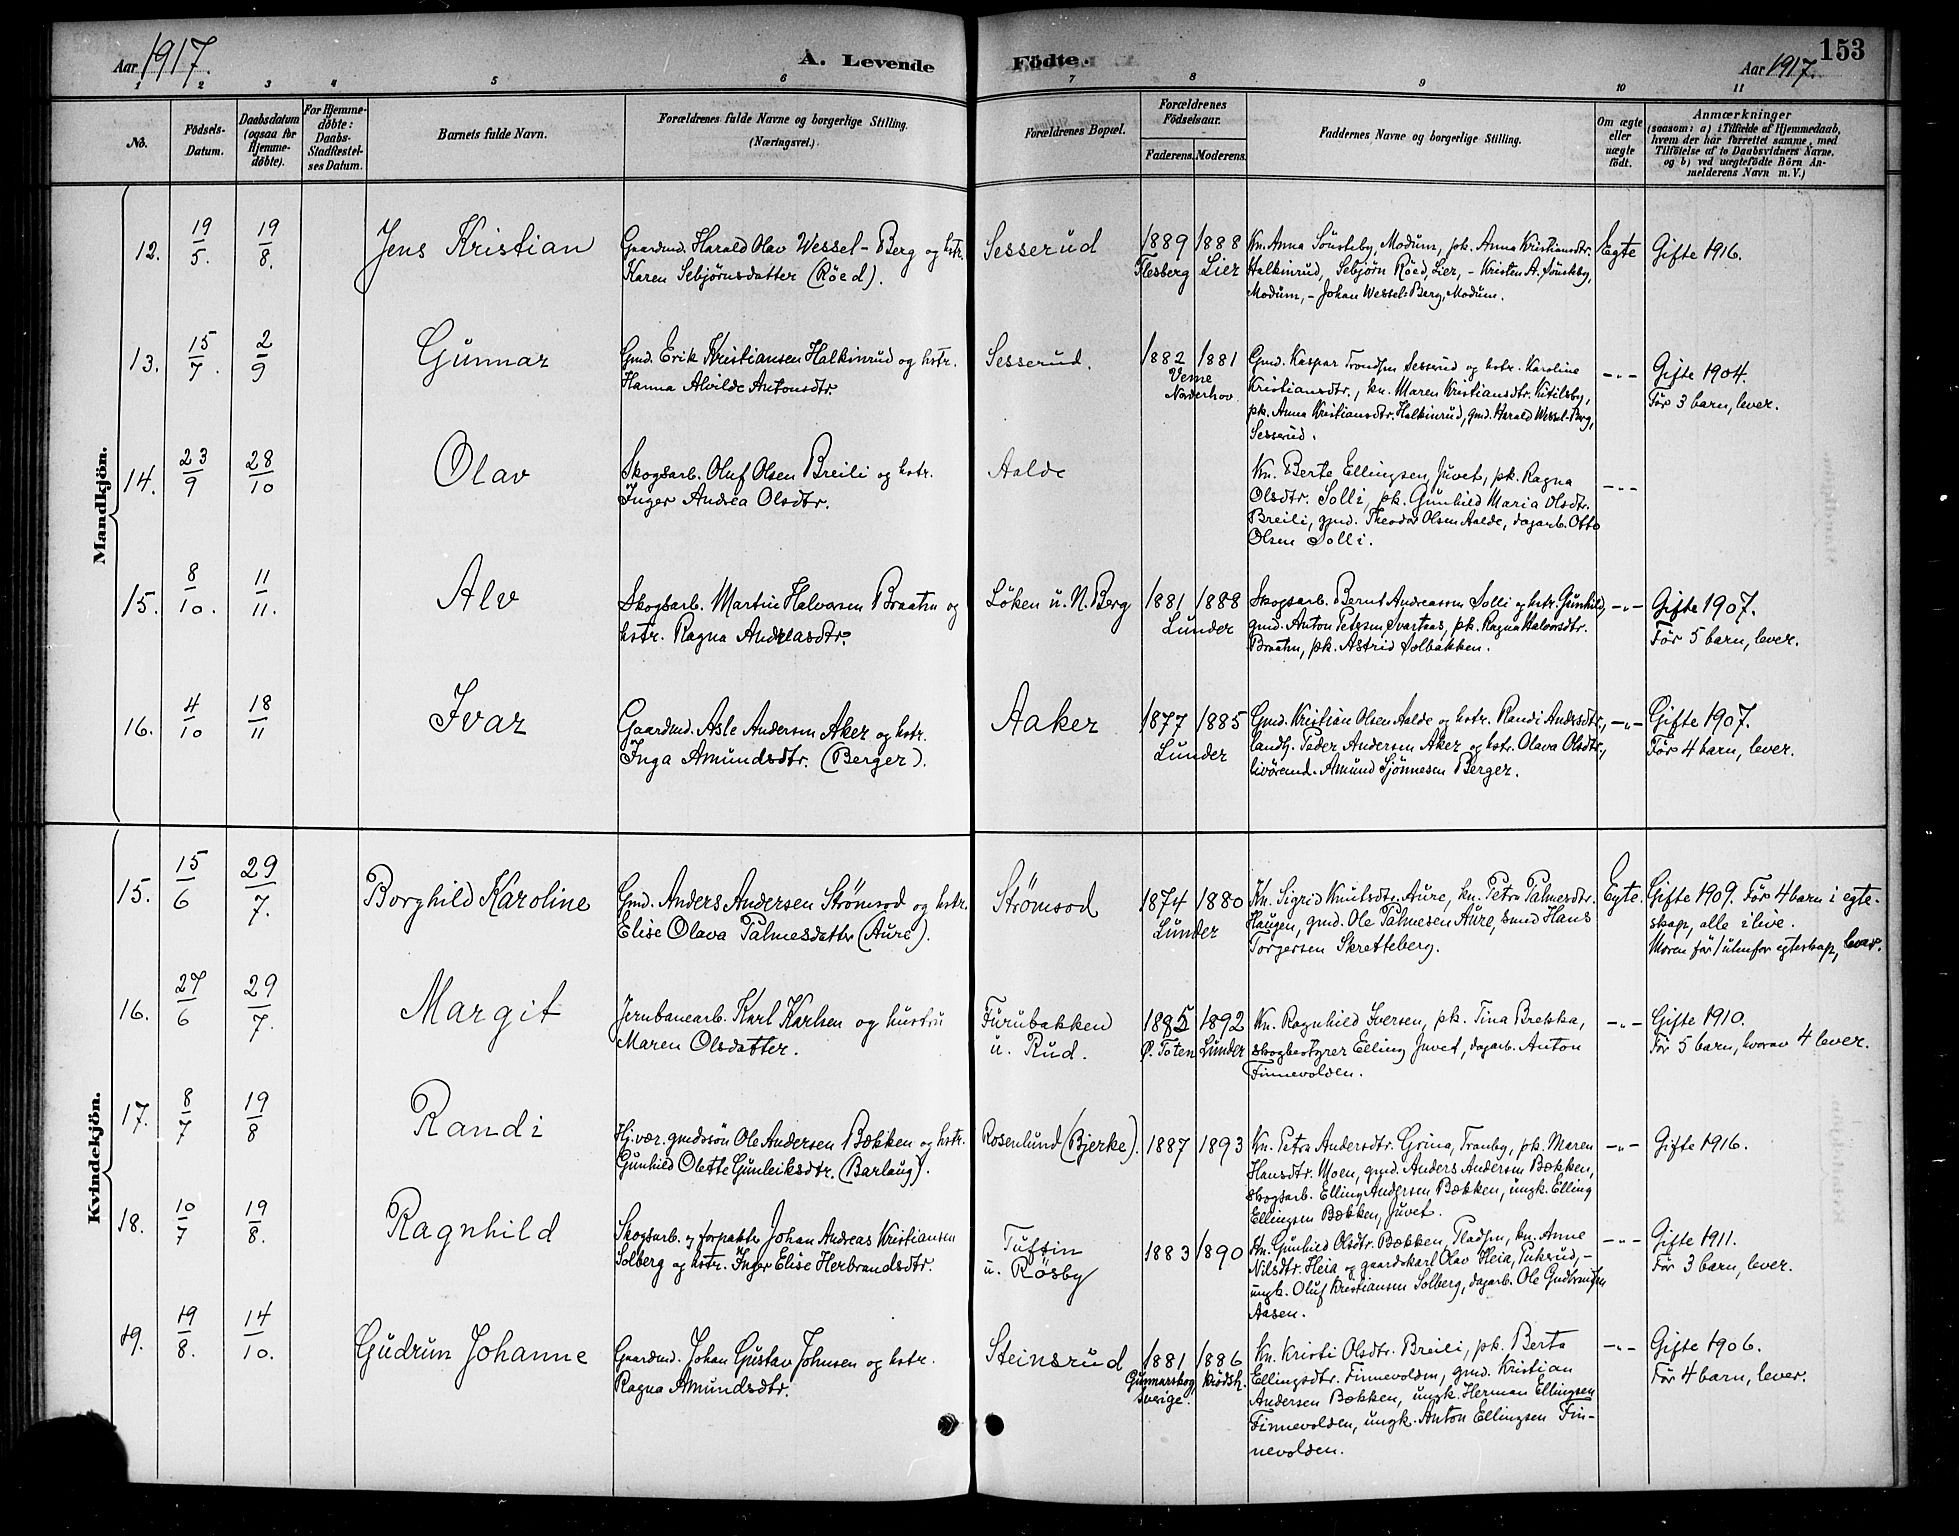 Aar 1917. A. Levende Födte. Aar 1917. 153
1 2 3 4 5 6 7 8 9 10 11
No. Födsels-Datum. Daabsdatum (ogsaa for Hjemme-döbte). For Hjemme-döbte: Daabs-Stadfæstel-ses Datum. Barnets fulde Navn. Forældrenes fulde Navne og borgerlige Stilling. (Næringsvei.) Forældrenes Bopæl. Forældrenes Födselsaar. Faderens. Moderens. Faddernes Navne og borgerlige Stilling. Om ægte eller uægte födt. Anmærkninger
(saasom: a) i Tilfælde af Hjemmedaab,
hvem der har forrettet samme, med
Tilföielse af to Daabsvidners Navne.
og b) ved uægtefödte Börn An-
melderens Navn m. V.)
Mandkjön.
12. 19/5. 19/8. Jens Kristian
Gaardmd. Harald Olav Wessel-Berg og hstr.
Karen Sebjørnsdatter (Röed).
Sesserud
1889 1888
Flesberg Lier
Kn. Anna Sönsteby, Modum, pk. Anna Kristiansdtr.
Halkinrud, Sebjørn Röed, Lier, - Kristen A. Sönsteby,
Modum, - Johan Wessel-Berg, Modum.
Egte
Gifte 1916.
13. 15/7. 2/9 Gunnar
Gmd. Erik Kristiansen Halkinrud og hstr.
Hanna Alvilde Antonsdtr.
Sesserud.
1882 1881
Veme
Norderhov
Gmd. Kaspar Trondsen Sesserud og hstr. Karoline
Kristiansdtr., kn. Maren Kristiansdtr. Kitilsby,
pk. Anna Kristiansdtr. Halkinrud, gmd. Harald Wessel-Berg,
Sesserud.
-"-
Gifte 1904.
Før 3 barn, lever.
14. 23/9 28/10 Olav
Skogsarb. Oluf Olsen Breili og hstr.
Inger Andrea Olsdtr.
Aalde
Kn. Berte Ellingsen Juvet, pk. Ragna
Olsdtr. Solli, pk. Gunhild Maria Olsdtr.
Breili, gmd. Theodor Olsen Aalde, dagarb. Otto
Olsen Solli.
-"-
15. 8/10. 11/11. Alv
Skogsarb. Martin Halvorsen Braatn og
hstr. Ragna Andreasdtr.
Löken u. N. Berg
1881 1888
Lunder
Skogsarb. Bernt Andreassen Solli og hstr. Gunhild,
gmd. Anton Petersen Svartaas, pk. Ragna Halvorsdtr.
Braatn, pk. Astrid Solbakken.
-"-
Gifte 1907.
Før 5 barn, lever.
16. 4/10 18/11 Ivar
Gaardmd. Asle Andersen Aker og hstr.
Inga Amundsdtr. (Berger).
Aaker
1877 1885
Lunder
Gmd. Kristian Olsen Aalde og hstr. Randi Andersdtr.,
landh. Peder Andersen Aker og hstr. Olava Olsdtr.,
livöremd. Amund Sjönnesen Berger.
-"-
Gifte 1907.
Før 4 barn, lever.
Kvindekjön.
15. 15/6 29/7. Borghild Karoline
Gmd. Anders Andersen Strömsod og hstr.
Elise Olava Palmesdatter (Aure).
Strömsod
1874 1880
Lunder
Kn. Sigrid Knutsdtr. Aure, kn. Petra Palmesdtr.
Haugen, gmd. Ole Palmesen Aure, smed Hans
Torgersen Skretteberg.
Egte.
Gifte 1909. Før 4 barn i egte-
skap, alle i live.
Moren før 1 utenfor egteskap, lever.
16. 27/6 29/7. Margit
Jernbanearb. Karl Karlsen og hustru
Maren Olsdatter.
Furubakken
u. Rud.
1885 1892
Ø. Toten Lunder
Kn. Ragnhild Iversen, pk. Tina Brekka,
skogbestyrer Elling Juvet, dagarb. Anton
Finnevolden.
-"-
Gifte 1910.
Før 5 barn, hvorav 4 lever.
17. 8/7 19/8 Randi
Hj. vær. gmdssön Ole Andersen Bækken og hstr.
Gunhild Olette Gunleiksdtr. (Barlaug).
Rosenlund (Bjerke).
1887 1893
Kn. Petra Andersdtr. Grina, Tranby, pk. Maren
Hansdtr. Moen, gmd. Anders Andersen Bækken,
skogsarb. Elling Andersen Bækken, ungk. Elling
Ellingsen Bækken, Juvet.
-"-
Gifte 1916.
18. 10/7 19/8. Ragnhild
Skogsarb. og forpakter Johan Andreas Kristiansen
Solberg og hstr. Inger Elise Herbrandsdtr.
Tuftin
u. Rösby
1883 1890
Kn. Gunhild Olsdtr. Bækken, Pladsn, kn. Anne
Nilsdtr. Heia og gaardskarl Olav Heia, Puksrud, -
ungk. Oluf Kristiansen Solberg, dagarb. Ole Gudbrandsen
Aasen.
-"-
Gifte 1911.
Før 3 barn, lever.
19. 19/8. 14/10. Gudrun Johanne
Gaardmd. Johan Gustav Johnsen og hstr.
Ragna Amundsdtr.
Steinsrud
1881 1886
Gunnarskog, Krödsh.
Sverige.
Kn. Kristi Olsdtr. Breili, pk. Berta
Ellingsdtr. Finnevolden, gmd. Kristian
Andersen Bækken, ungk. Herman Ellingsen
Finnevolden, ungk. Anton Ellingsen Fin-
nevolden.
-"-
Gifte 1906.
Før 4 barn, lever.